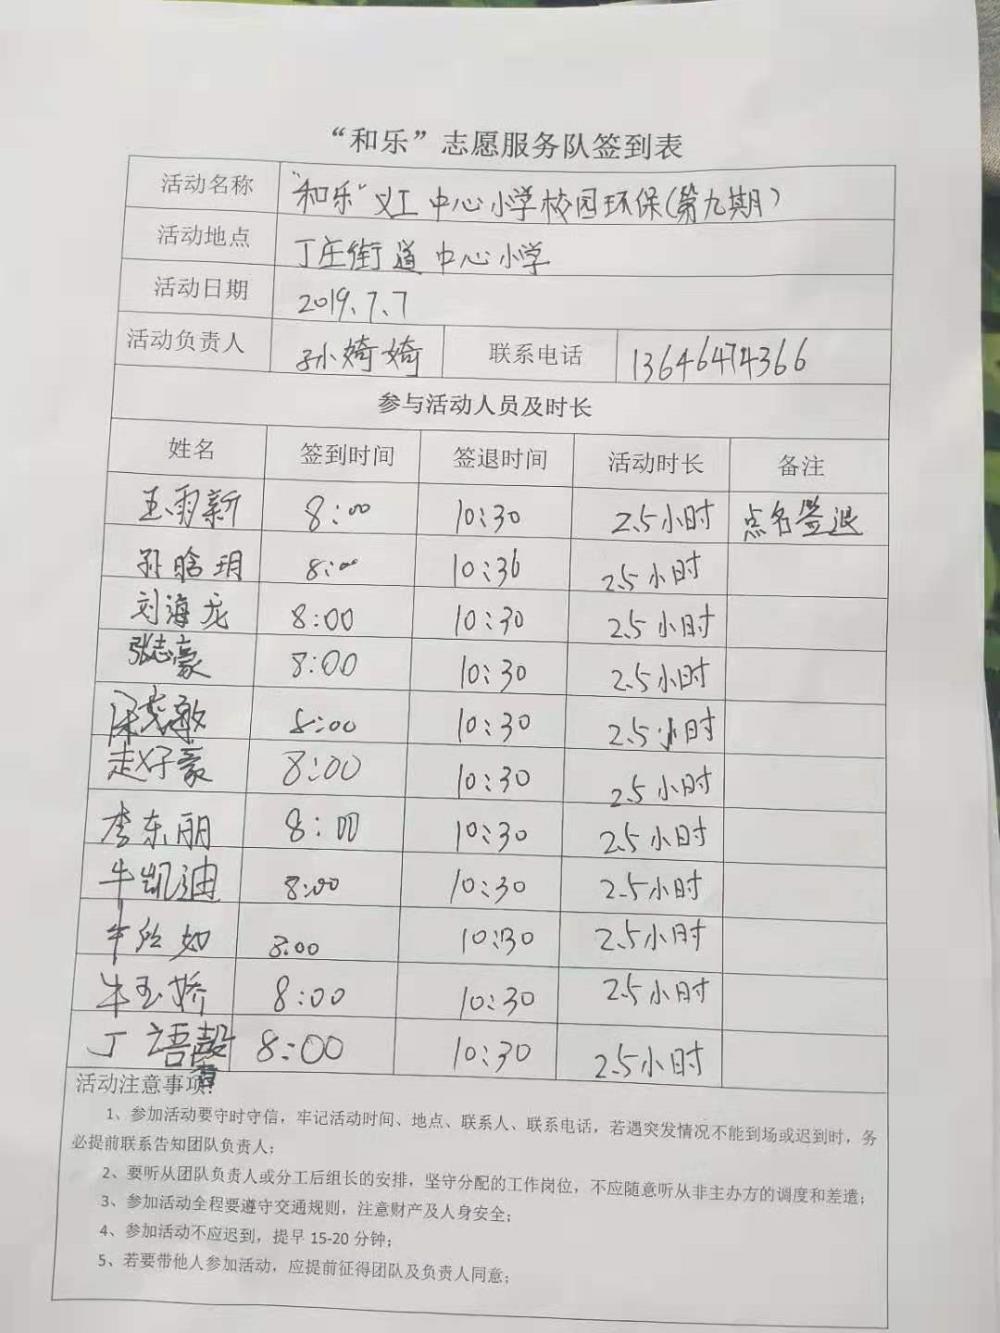 “和乐”志愿服务队签到表
活动名称 “和乐”义工 中心小学校园环保(第九期)
活动地点 丁庄街道 中心小学
活动日期 2019.7.7
活动负责人 孙婍婍 联系电话 13646474366
参与活动人员及时长
姓名 签到时间 签退时间 活动时长 备注
王雨新 8:00 10:30 2.5小时 点名签退
孙晗玥 8:00 10:30 2.5小时
刘海龙 8:00 10:30 2.5小时
张志豪 8:00 10:30 2.5小时
8:00 10:30 2.5小时
赵好豪 8:00 10:30 2.5小时
李东丽 8:00 10:30 2.5小时
牛凯迪 8:00 10:30 2.5小时
牛 如 8:00 10:30 2.5小时
牛玉娇 8:00 10:30 2.5小时
丁语馨 8:00 10:30 2.5小时
活动注意事项:
1、参加活动要守时守信，牢记活动时间、地点、联系人、联系电话，若遇突发情况不能到场或迟到时，务
必提前联系告知团队负责人；
2、要听从团队负责人或分工后组长的安排，坚守分配的工作岗位，不应随意听从非主办方的调度和差遣；
3、参加活动全程要遵守交通规则，注意财产及人身安全；
4、参加活动不应迟到，提早 15-20 分钟；
5、若要带他人参加活动，应提前征得团队及负责人同意；